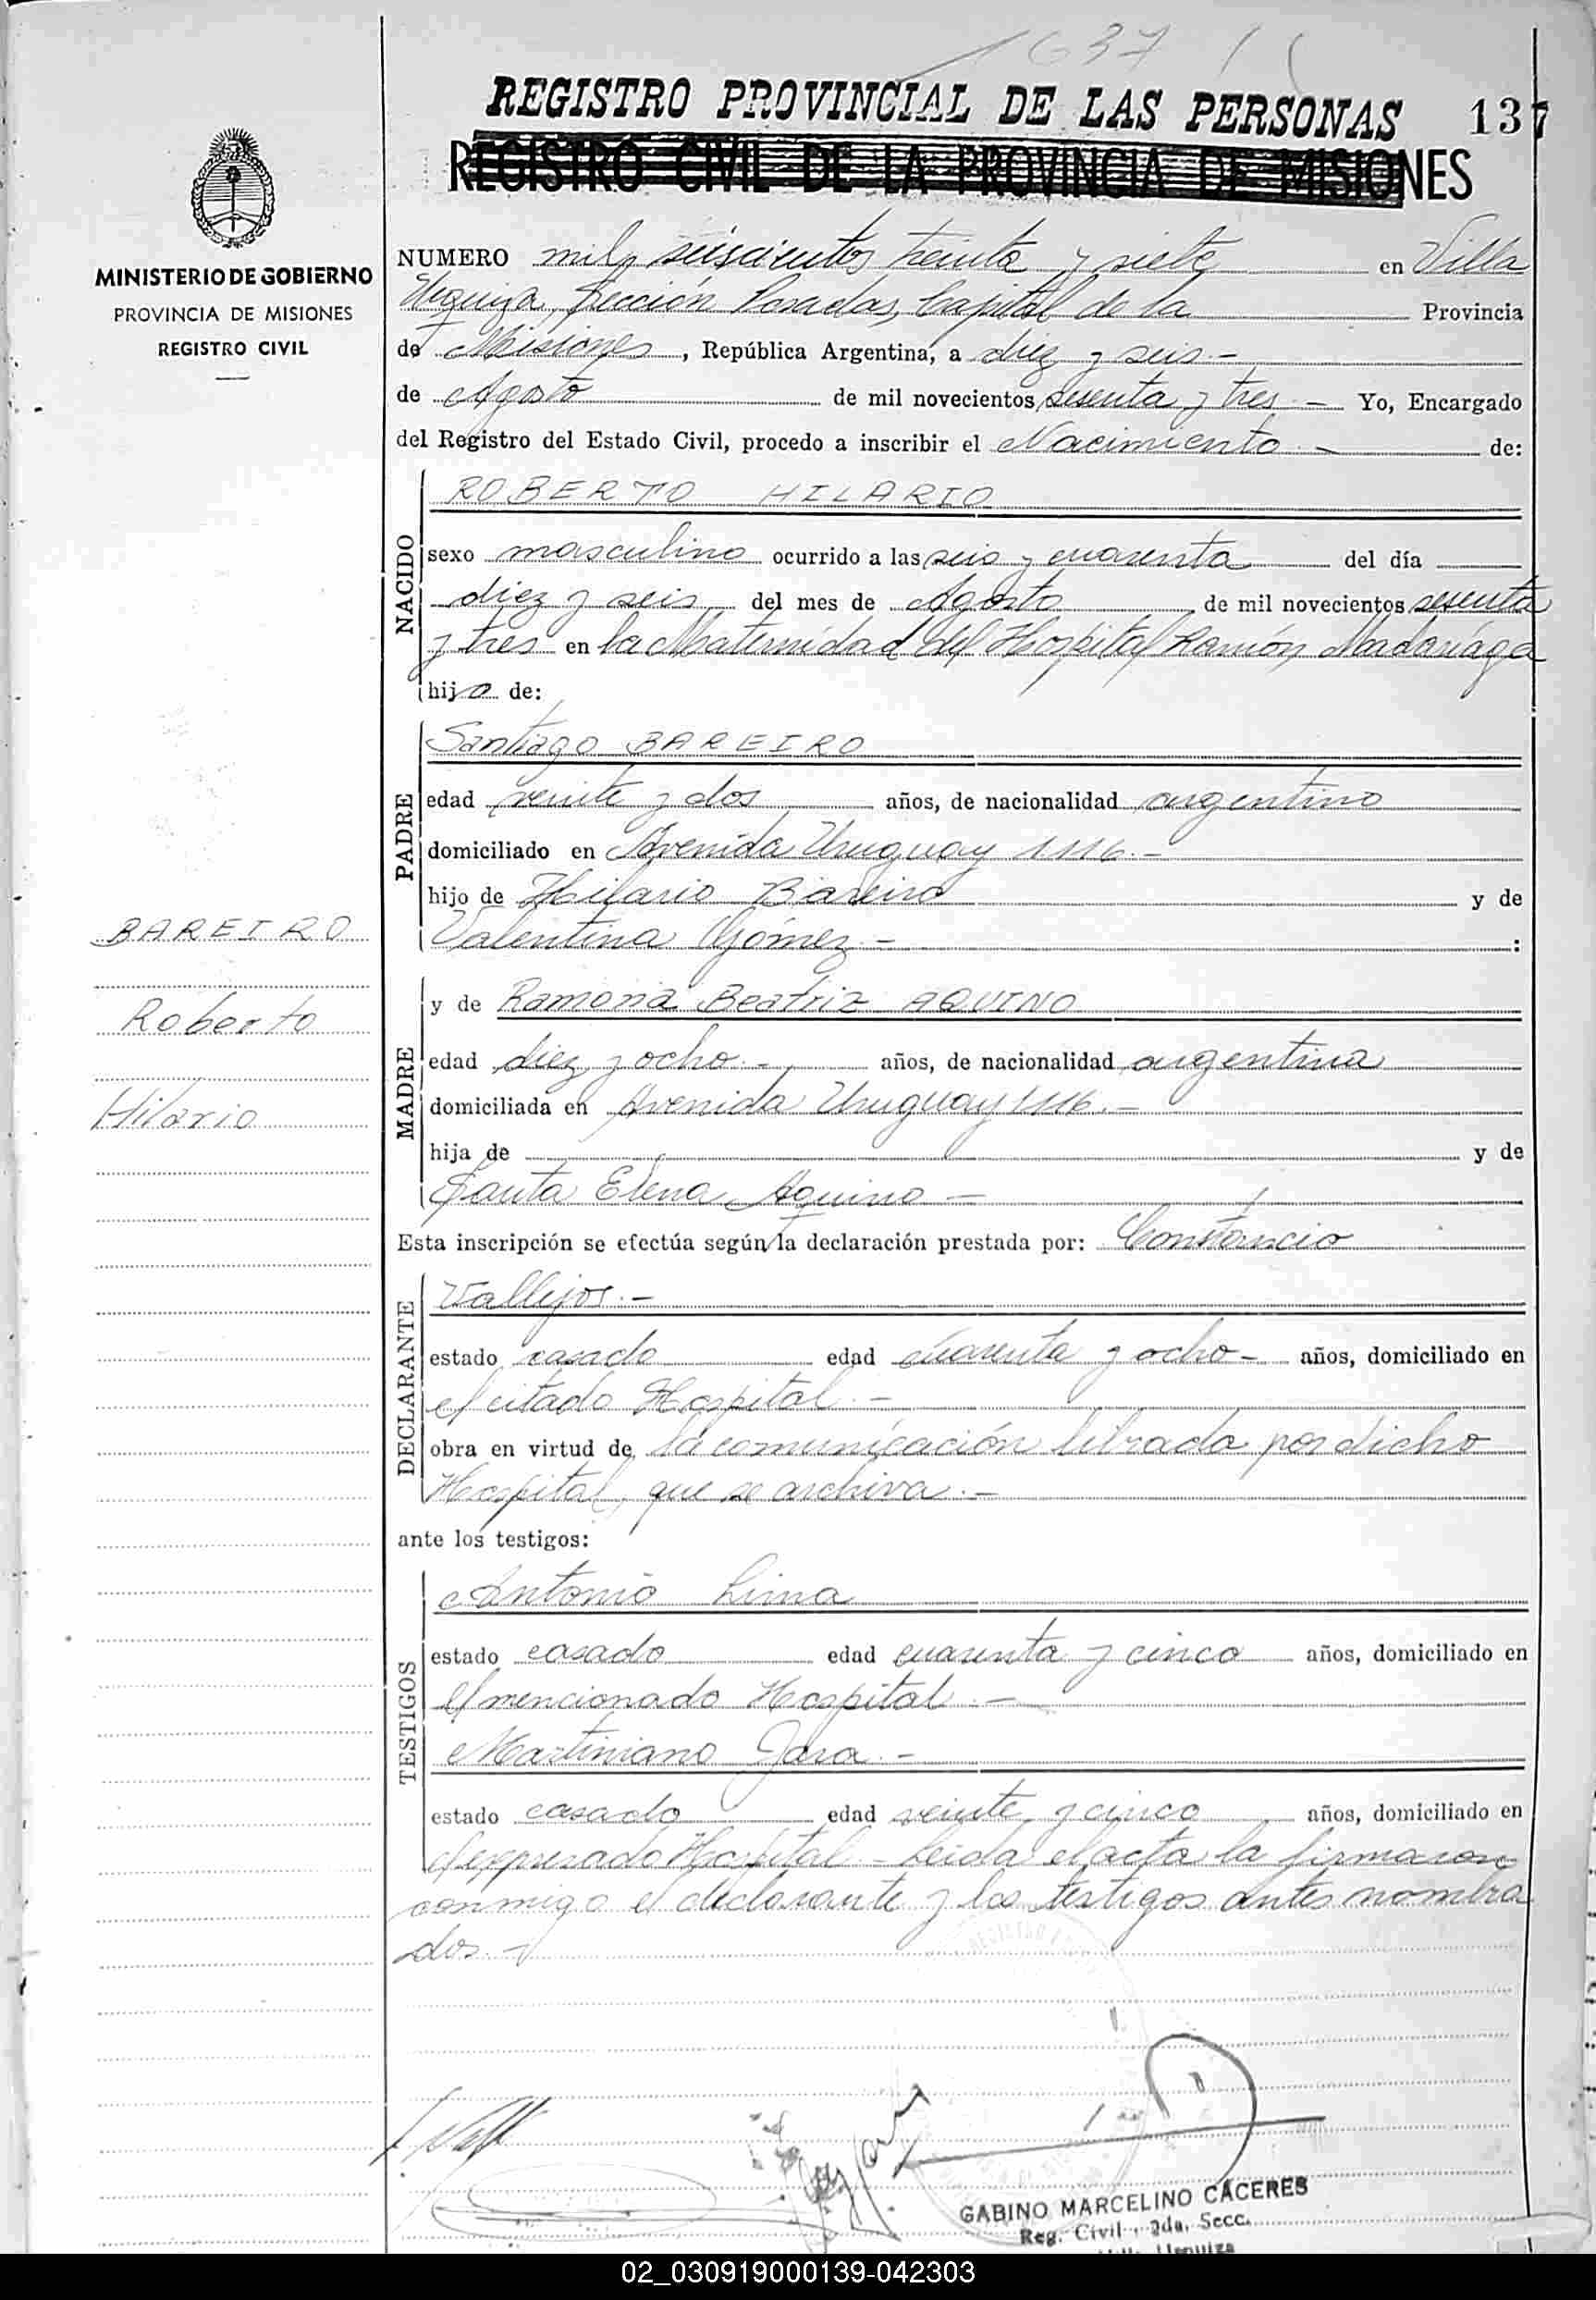 1637
REGISTRO PROVINCIAL DE LAS PERSONAS 137
REGISTRO CIVIL DE LA PROVINCIA DE MISIONES
MINISTERIO DE GOBIERNO
PROVINCIA DE MISIONES
REGISTRO CIVIL
NUMERO mil seiscientos treinta y siete en Villa
Urquiza, Sección Posadas, Capital de la Provincia
de Misiones, República Argentina, a diez y seis.-
de Agosto de mil novecientos sesenta y tres.- Yo, Encargado
del Registro del Estado Civil, procedo a inscribir el Nacimiento.- de:
NACIDO
ROBERTO HILARIO
sexo masculino ocurrido a las seis y cuarenta del día
diez y seis del mes de Agosto de mil novecientos sesenta
y tres en la Maternidad del Hospital Ramón Madariaga
hijo de:
PADRE
Santiago BAREIRO
edad veinte y dos años, de nacionalidad argentino
domiciliado en Avenida Uruguay 1116.-
hijo de Hilario Bareiro y de
Valentina Gómez.- :
BAREIRO
Roberto
Hilario
MADRE
y de Ramona Beatriz AQUINO
edad diez y ocho.- años, de nacionalidad argentina
domiciliada en Avenida Uruguay 1116.-
hija de y de
Santa Elena Aquino.-
Esta inscripción se efectúa según la declaración prestada por: Constancio
DECLARANTE
Vallejos.-
estado casado edad cuarenta y ocho- años, domiciliado en
el citado Hospital.-
obra en virtud de la comunicación librada por dicho
Hospital, que se archiva.-
ante los testigos:
TESTIGOS
Antonio Lima
estado casado edad cuarenta y cinco años, domiciliado en
el mencionado Hospital.-
Martiniano Jara.-
estado casado edad veinte y cinco años, domiciliado en
el expresado Hospital.- Leida el acta la firmaron
conmigo el declarante y los testigos antes nombra
dos.-
GABINO MARCELINO CACERES
Reg. Civil, 2da. Secc.
Villa Urquiza
02_030919000139-042303